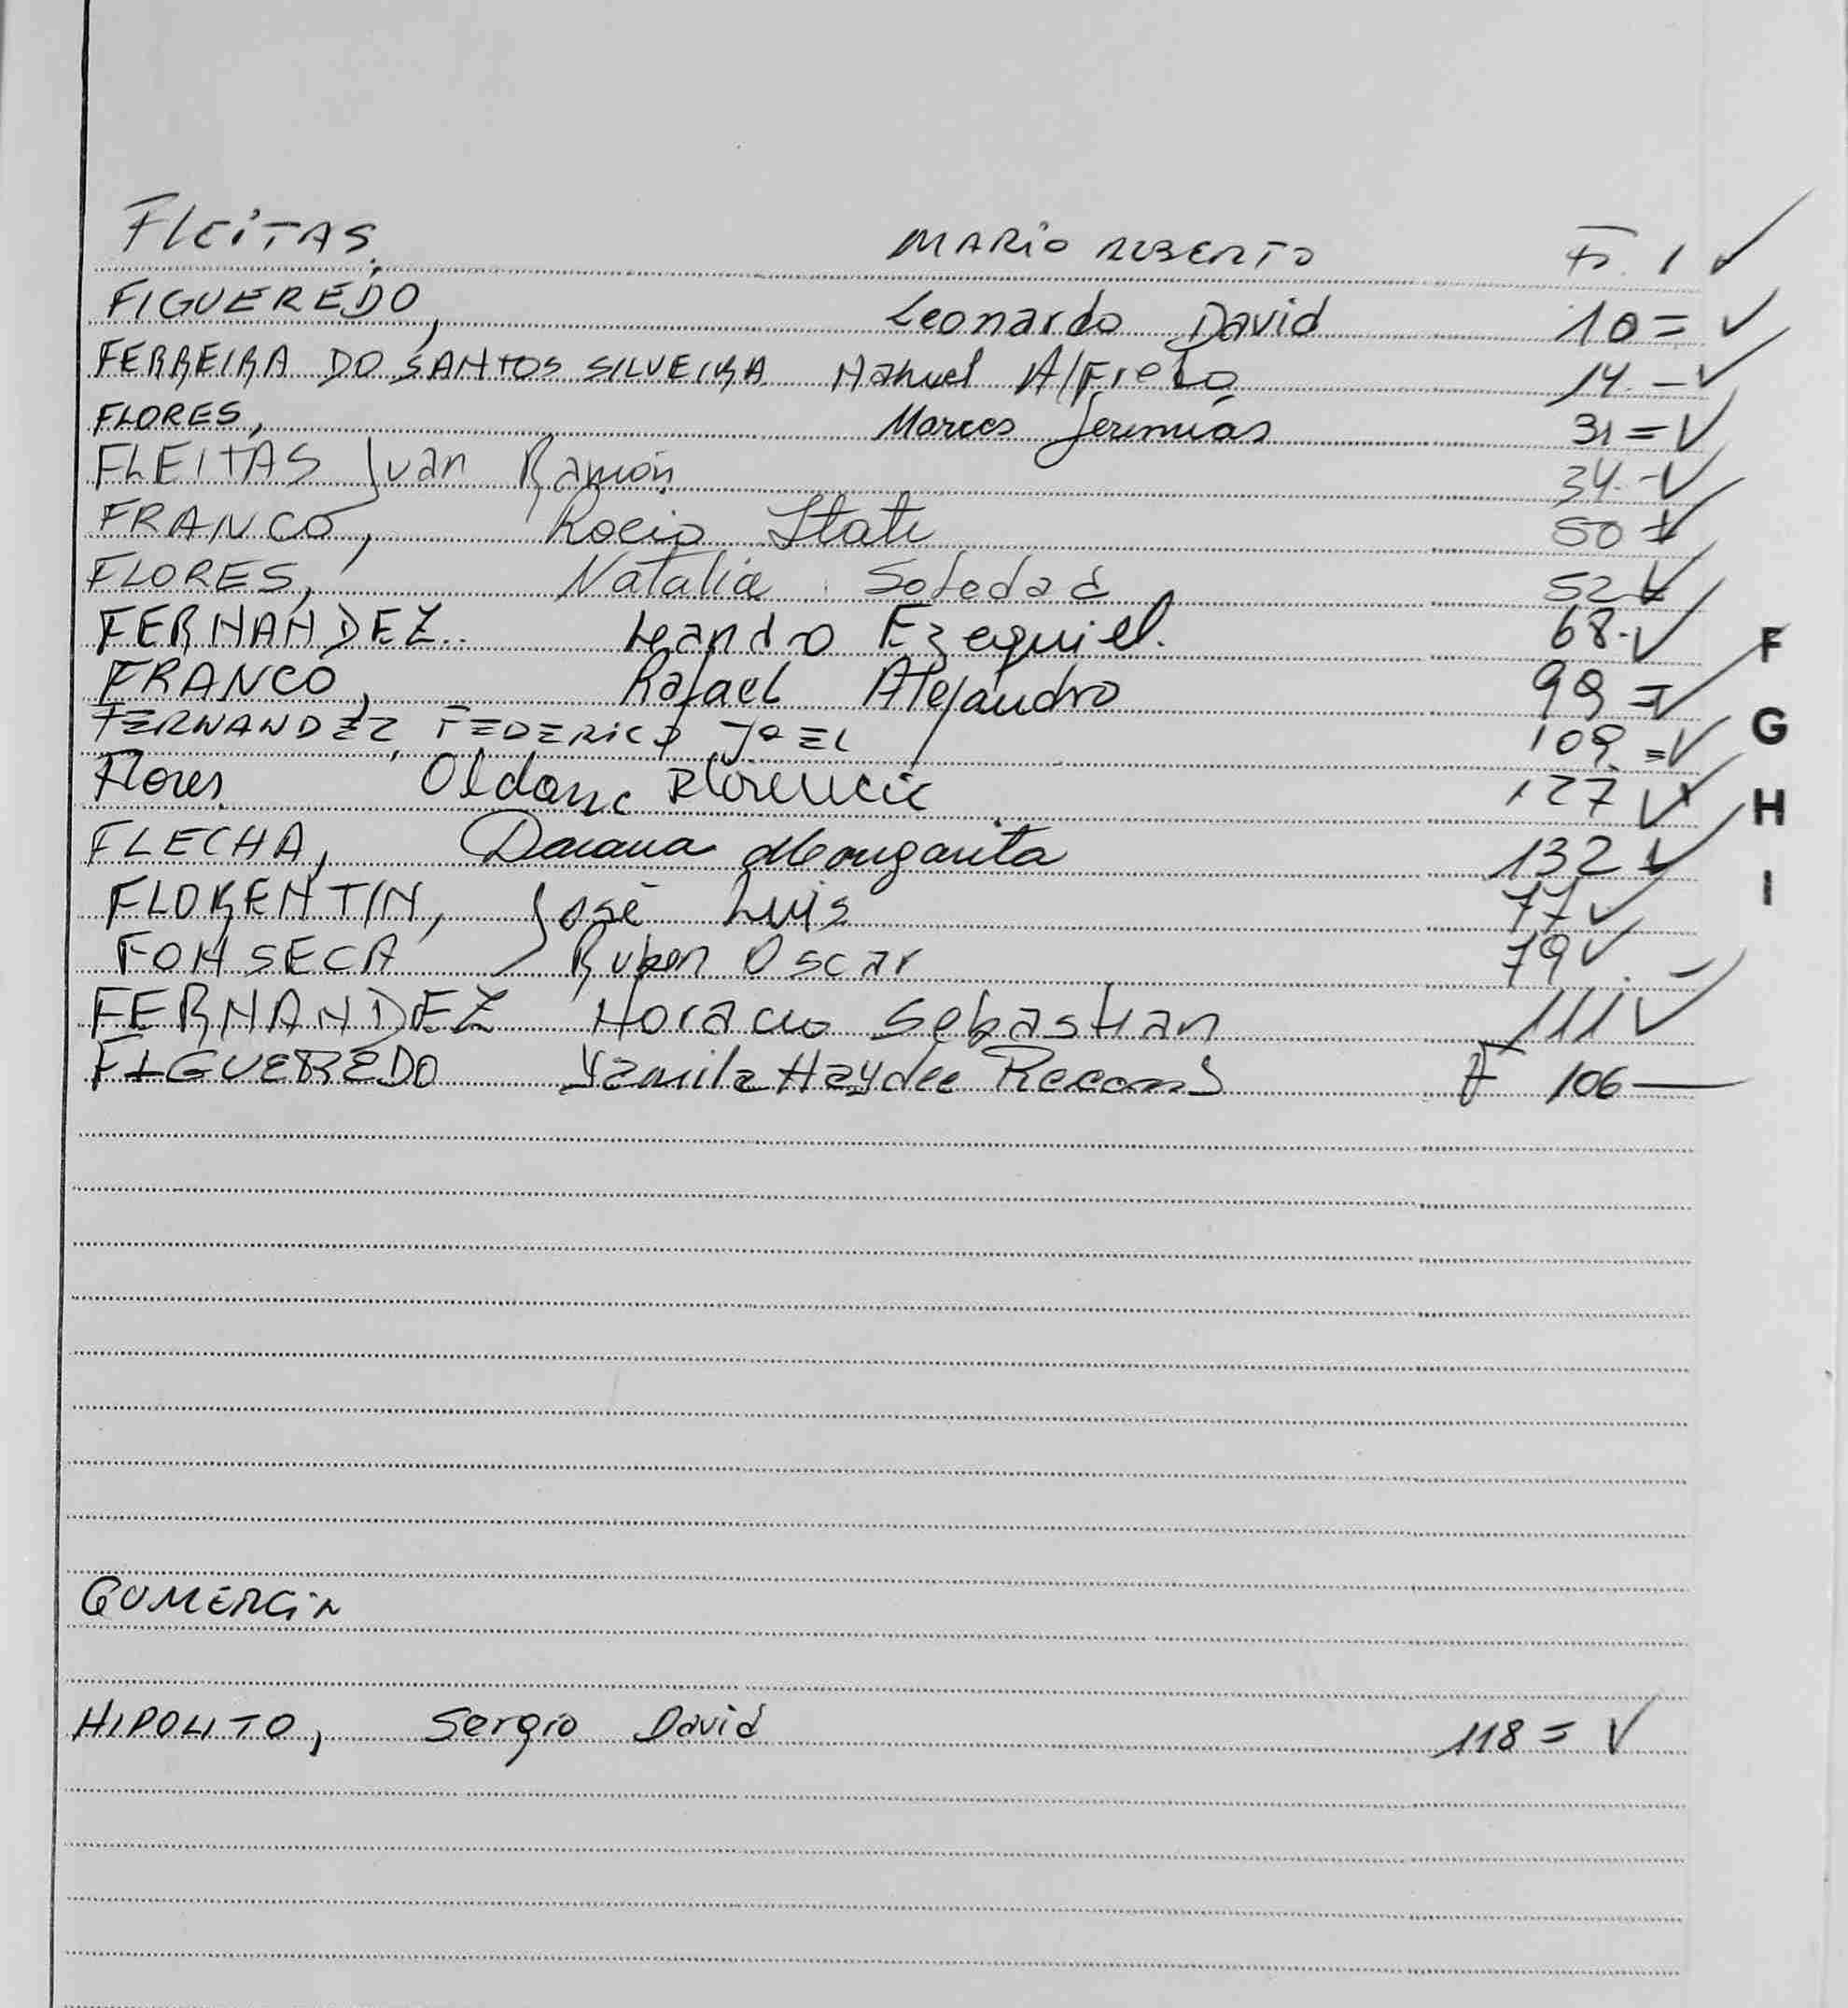 FLEITAS, MARIO ALBERTO Fs. 1 ✓
FIGUEREDO, Leonardo David 10 = ✓
FERREIRA DO SANTOS SILVEIRA Nahuel Alfredo 14 - ✓
FLORES, Marcos Jeremías 31 = ✓
FLEITAS Juan Ramón 34 - ✓
FRANCO, Rocio Itati 50 = ✓
FLORES, Natalia Soledad 52 ✓
FERNANDEZ Leandro Ezequiel. 68 - ✓
FRANCO, Rafael Alejandro 99 = ✓
FERNANDEZ, FEDERICO JOEL 109 = ✓
Flores Florencia 127 ✓
FLECHA, Daiana Margarita 132 ✓
FLORENTIN, José Luis 77 ✓
FONSECA Ruben Oscar 79 ✓
FERNANDEZ Horacio Sebastian 111 ✓
FIGUEREDO Yamila Haydee 106 —
F
G
H
I
GUMERCIN
HIPOLITO, Sergio David 118 = ✓